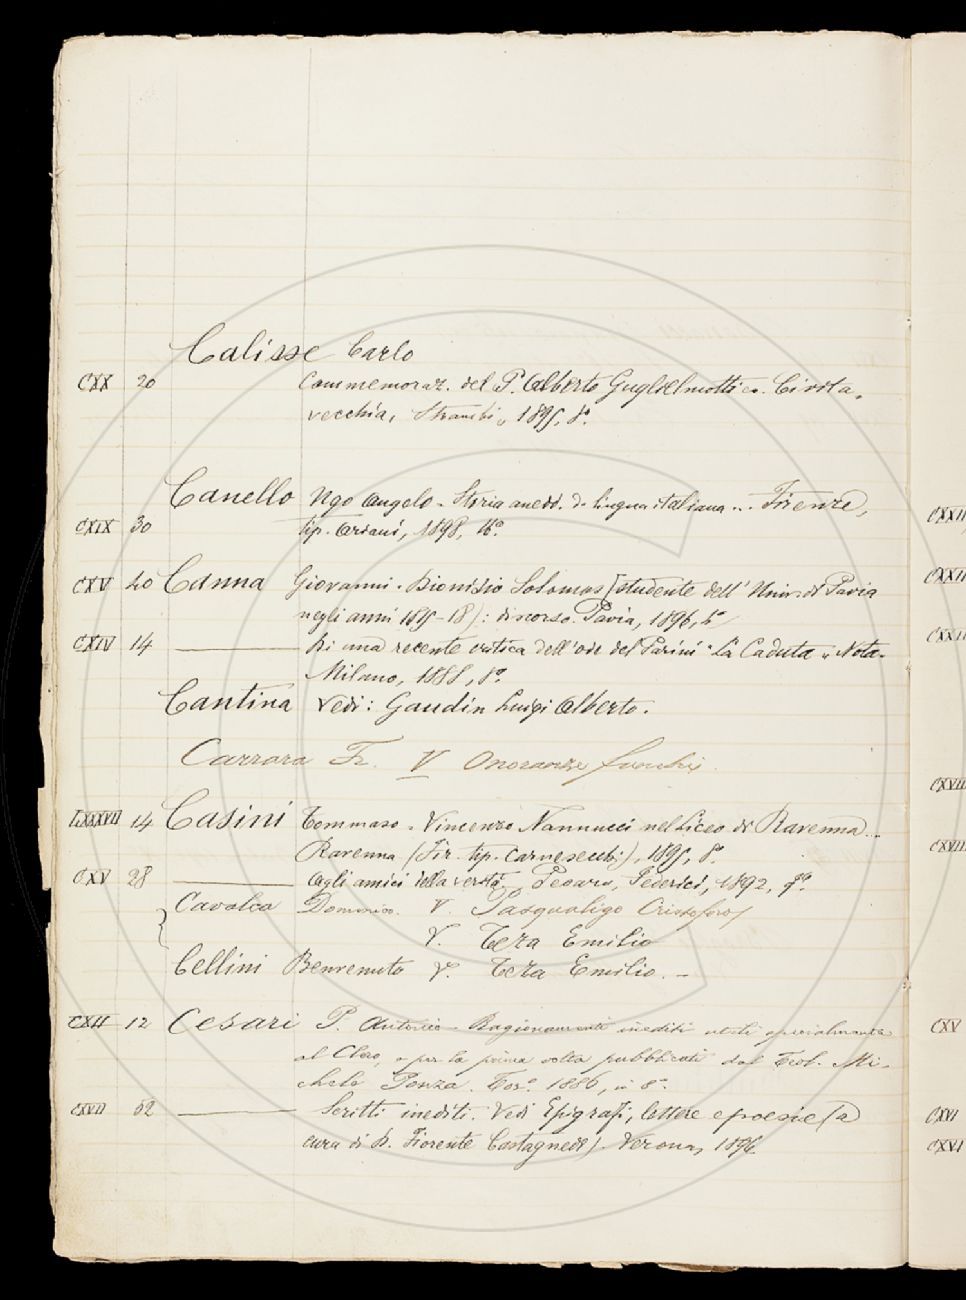 Calisse Carlo
CXX 20 Commemoraz. del P. Alberto Guglielmotti ... Civita-
vecchia, Strambi, 1895, 8º.
Canello Ugo Angelo - Storia aned. d. lingua italiana ... Firenze,
CXIX 30 tip. Ariani, 1898, 16º.
CXV 20 Canna Giovanni - Dionisio Solomos [studente dell' Univ. di Pavia
negli anni 1815-18]: discorso. Pavia, 1896, 8º
CXIV 14 ——— Di una recente critica dell'ode del Parini "La Caduta" Nota-
Milano, 1888, 8º.
Cantina Vedi: Gaudin Luigi Alberto.
Carrara Fr. V Onoranze funebri
LXXXVII 14 Casini Tommaso - Vincenzo Nannucci nel Liceo di Ravenna ...
Ravenna (Fir. tip. Carnesecchi), 1895, 8º.
CXV 28 ——— Agli amici della verità, Pesaro, Federici, 1892,
Cavalca Domenico. V. Pasqualigo Cristoforo
V. Teza Emilio
Cellini Benvenuto V. Teza Emilio. -
CXII 12 Cesari P. Antonio - Ragionamenti inediti utili specialmente
al Clero, e per la prima volta pubblicati dal Teol. Mi-
chele Ponza. Tor. 1886, in 8º.
CXVII 62 ——— Scritti inediti. Vedi Epigrafi, lettere e poesie (a
cura di D. Fiorente Castagnedi) Verona, 1896
CXXII
CXXII
CXXII
CXVII
CXVII
CXV
CXVI
CXVI